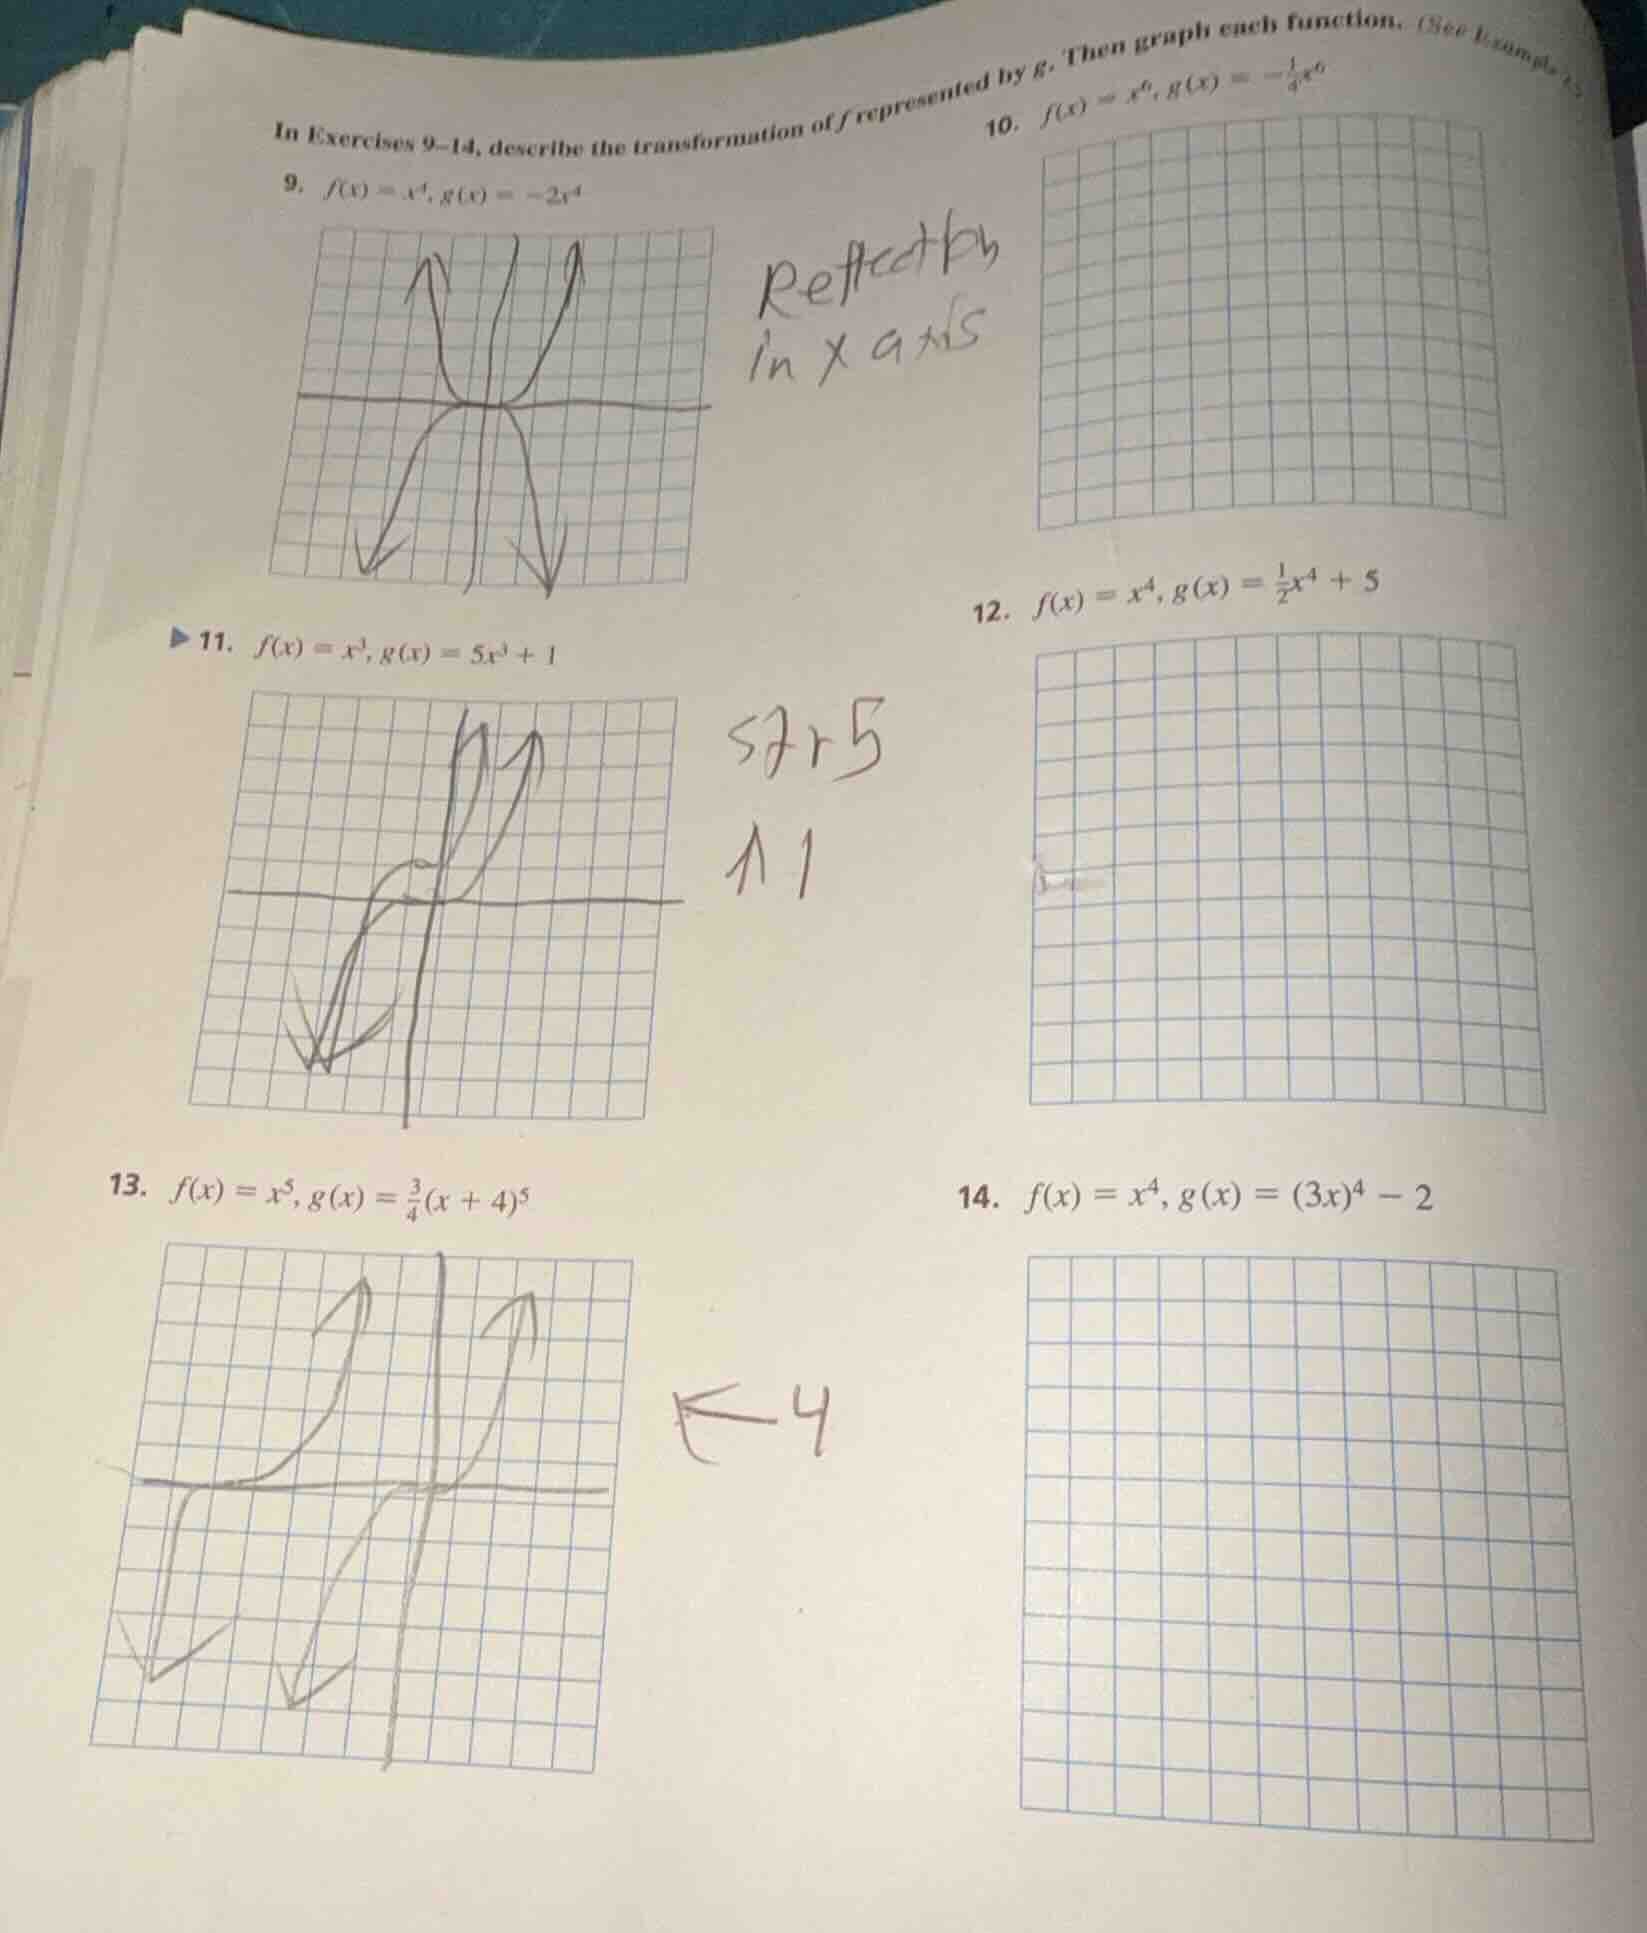 In Exercises 9–14, describe the transformation of f represented by g. Then graph each function. (See Example
9. f(x) = x⁴, g(x) = −2x⁴
10. f(x) = x⁶, g(x) = −1/4x⁶
Reflection
in x axis
11. f(x) = x³, g(x) = 5x³ + 1
12. f(x) = x⁴, g(x) = 1/2x⁴ + 5
↑ 1
13. f(x) = x⁵, g(x) = 3/4(x + 4)⁵
14. f(x) = x⁴, g(x) = (3x)⁴ − 2
← 4